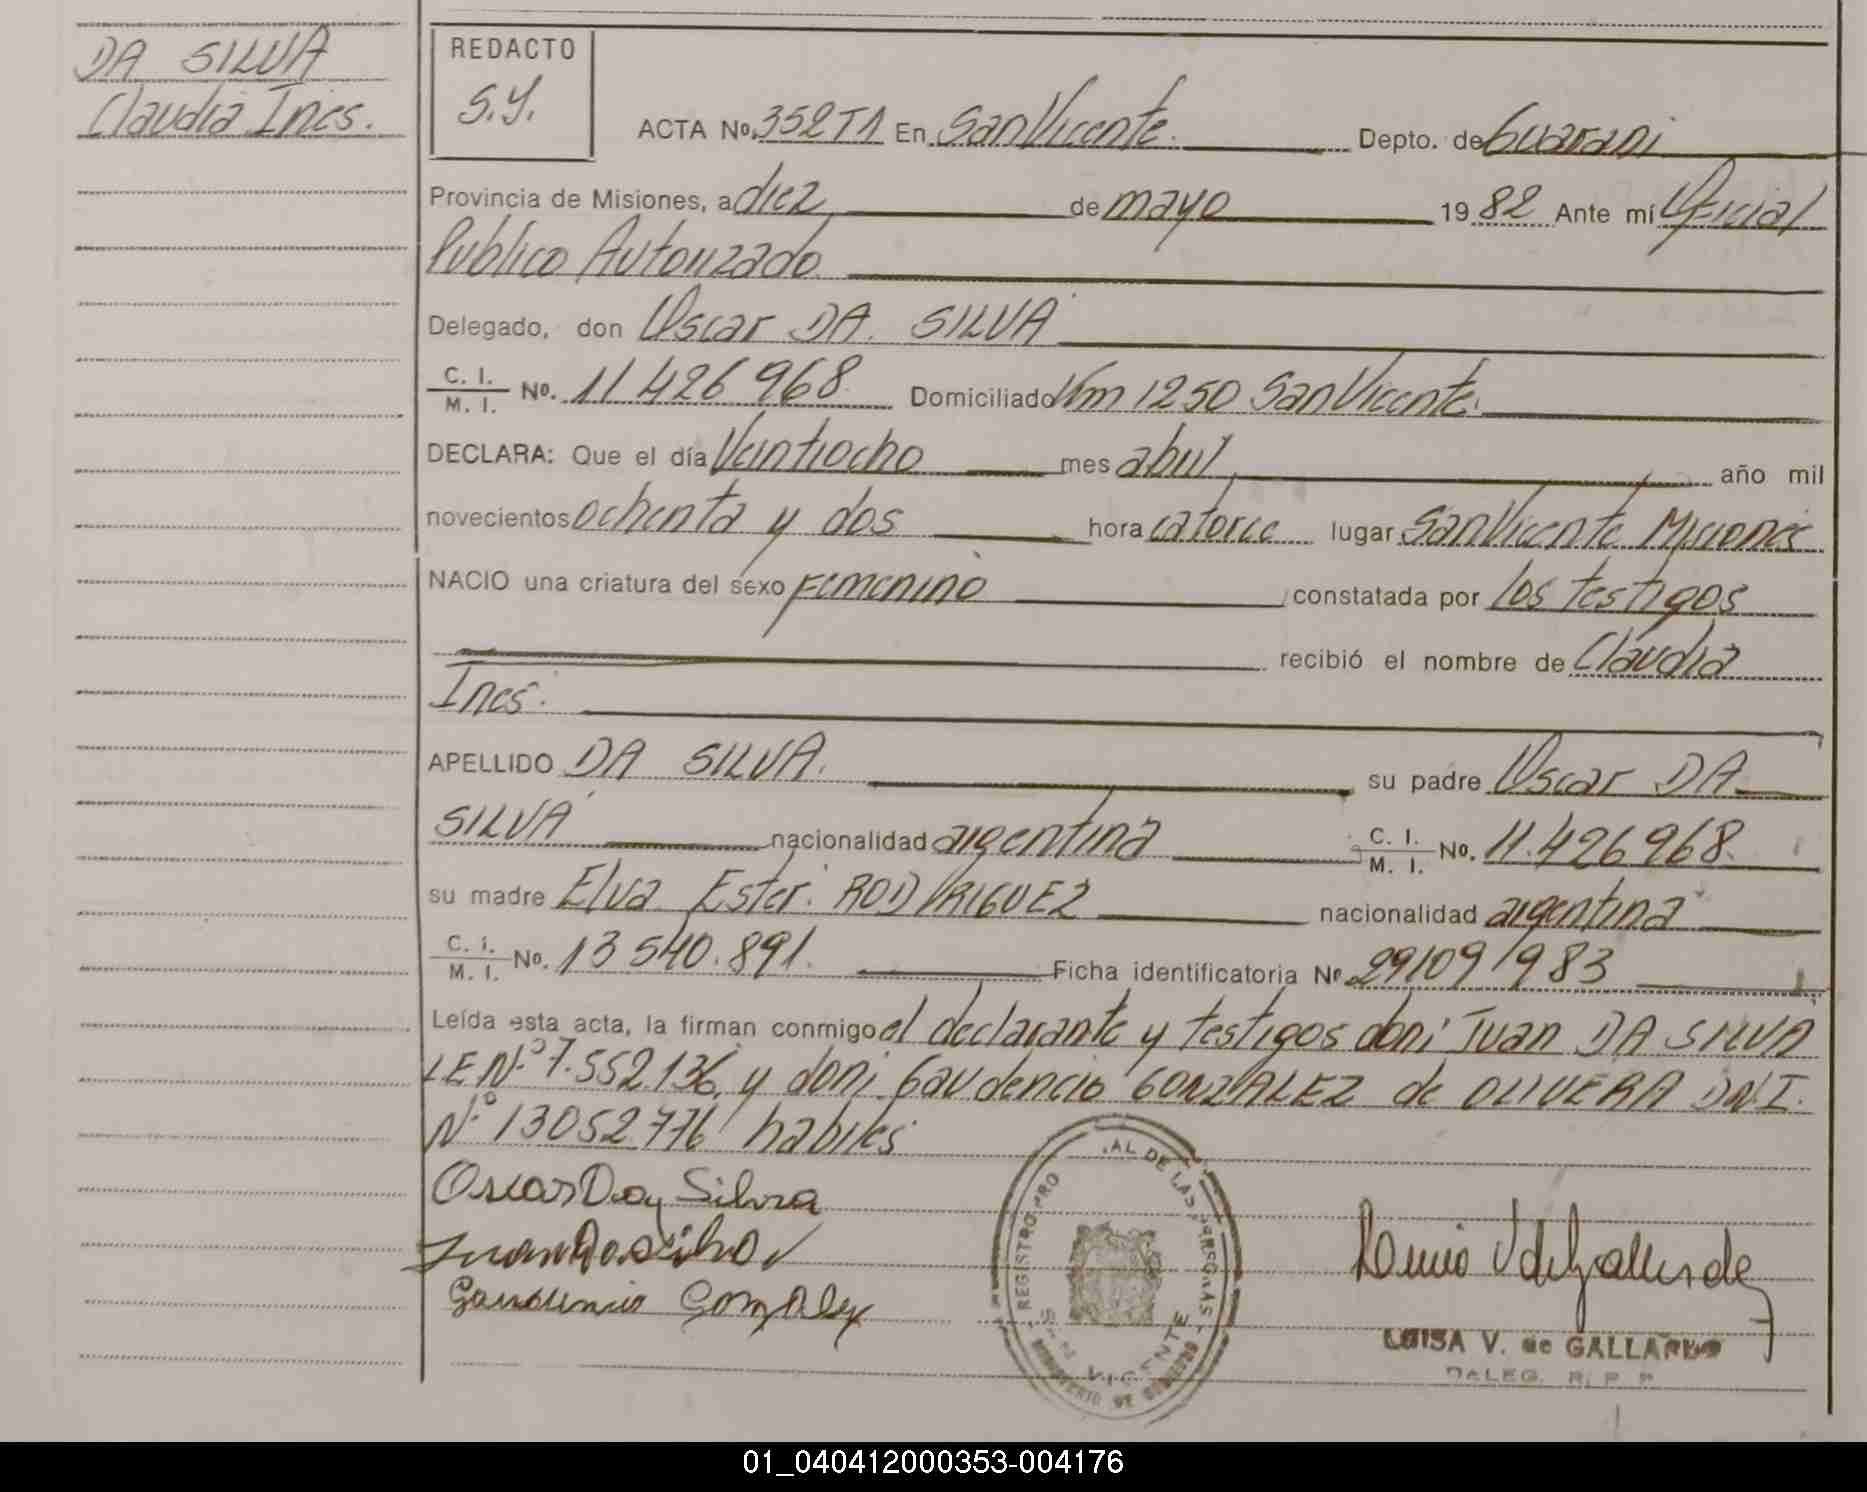 DA SILVA
Claudia Ines.
REDACTO
S.Y.
ACTA No. 352T1 En San Vicente. Depto. de Guarani
Provincia de Misiones, a diez de mayo 1982 Ante mí Oficial
Publico Autorizado
Delegado, don Oscar DA SILVA
C. I. / M. I. No. 11.426.968 Domiciliado Km 1250 San Vicente.
DECLARA: Que el día Veintiocho mes abril año mil
novecientos ochenta y dos hora catorce lugar San Vicente Misiones
NACIO una criatura del sexo Femenino constatada por los testigos
recibió el nombre de Claudia
Ines.
APELLIDO DA SILVA. su padre Oscar DA
SILVA nacionalidad argentina C. I. / M. I. No. 11.426968.
su madre Elva Ester. RODRIGUEZ nacionalidad argentina
C. I. / M. I. No. 13 540.891. Ficha identificatoria No 291091983
Leída esta acta, la firman conmigo el declarante y testigos don: Juan DA SILVA
LE Nº 7.552.136, y don: Gaudencio GONZALEZ de OLIVERA D.N.I.
Nº 13052776 habiles
Oscar Da Silva
Juan Da Silva
Gaudencio Gonzalez
REGISTRO PRO AL DE LAS PERSONAS
VICENTE
MINISTERIO DE GOBIERNO
LUISA V. de GALLARDO
DALEG. R. P. P.
01_040412000353-004176